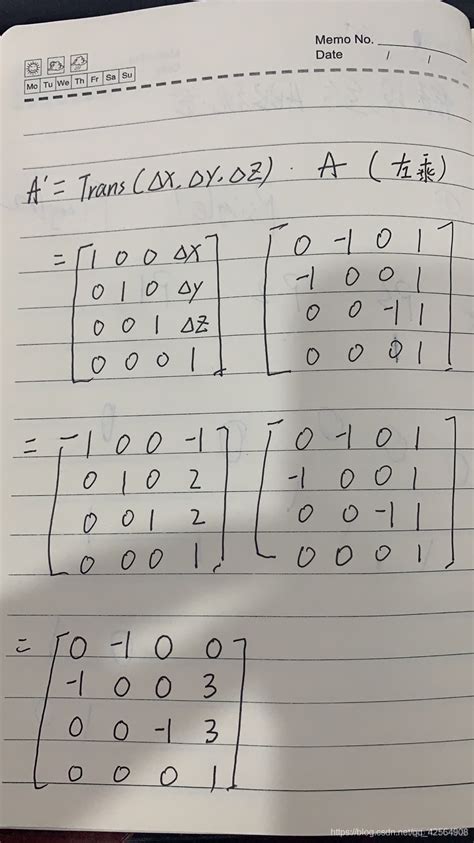 Memo No.
Date / /
Mo Tu We Th Fr Sa Su
A' = Trans (ΔX, ΔY, ΔZ) · A (左乘)
= [1 0 0 ΔX] [0 -1 0 1]
[0 1 0 ΔY] [-1 0 0 1]
[0 0 1 ΔZ] [0 0 -1 1]
[0 0 0 1] [0 0 0 1]
= [1 0 0 -1] [0 -1 0 1]
[0 1 0 2] [-1 0 0 1]
[0 0 1 2] [0 0 -1 1]
[0 0 0 1] [0 0 0 1]
= [0 -1 0 0]
[-1 0 0 3]
[0 0 -1 3]
[0 0 0 1]
https://blog.csdn.net/qq_42564908